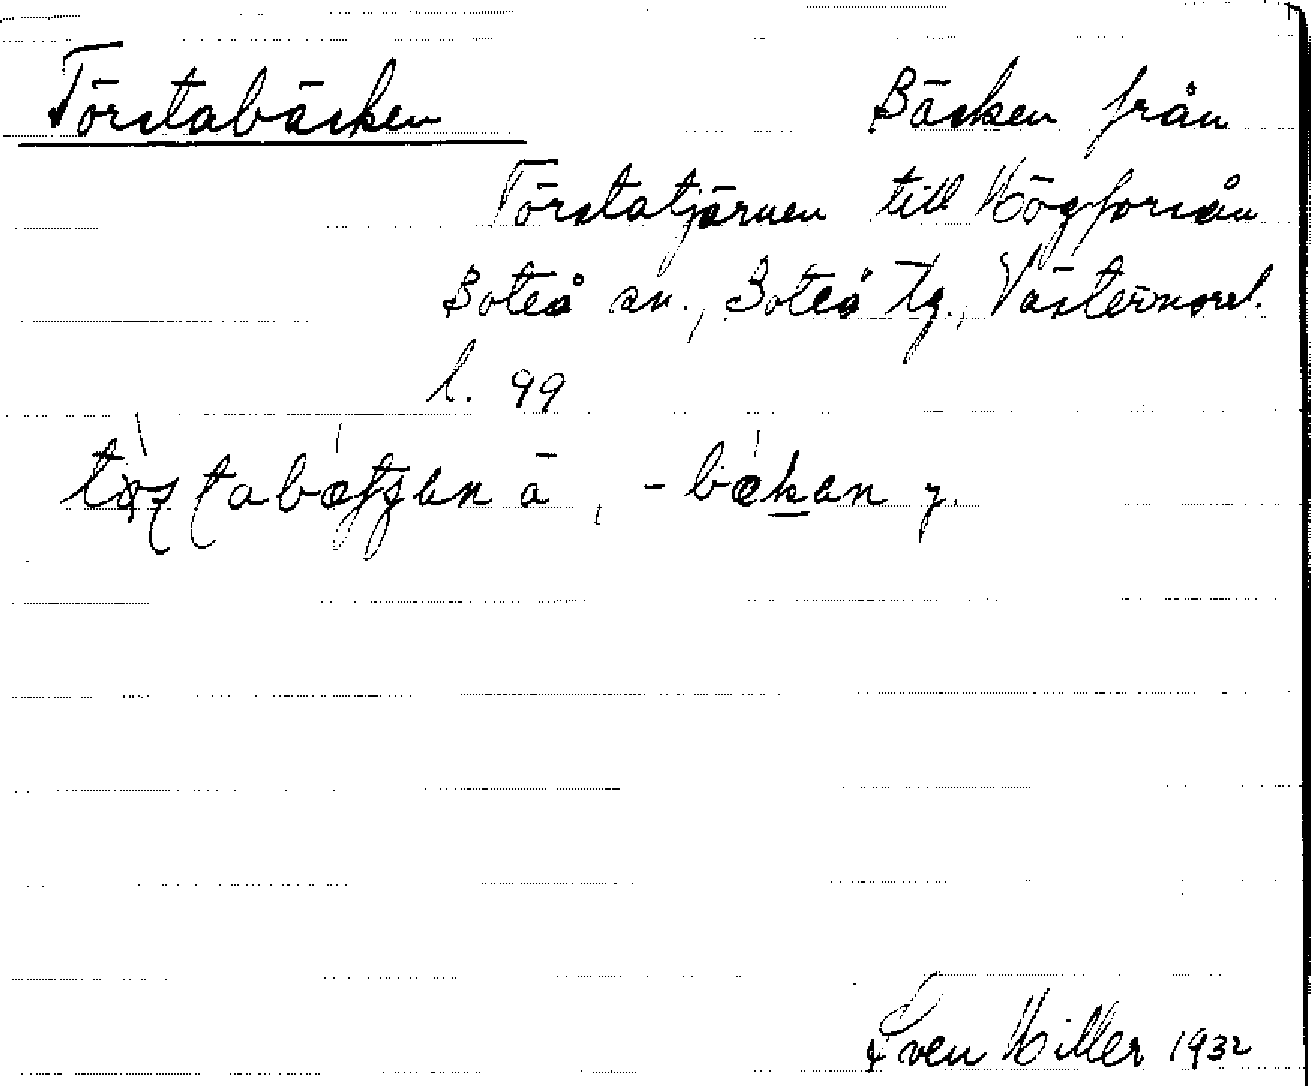 Törstabäcken Bäcken från
Törstatjärnen till Högforsån
Boteå sn., Boteå tg., Västernorrl.
l. 99
-bækan y.
Sven Hiller 1932